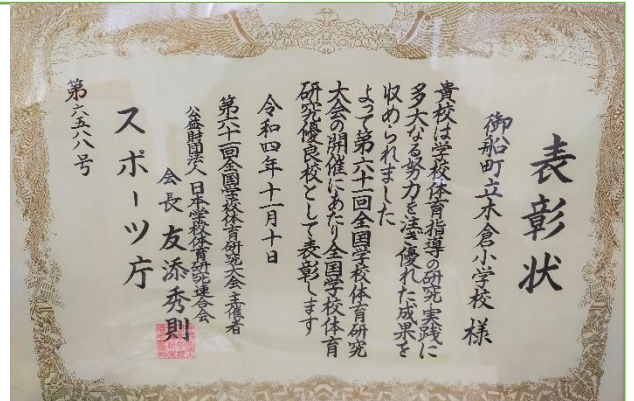 表彰状
御船町立木倉小学校 様
貴校は学校体育指導の研究実践に
多大なる努力を注ぎ優れた成果を
収められました
よって第六十一回全国学校体育研究
大会の開催にあたり全国学校体育
研究優良校として表彰します
令和四年十一月十日
第六十一回全国学校体育研究大会主催者
公益財団法人 日本学校体育研究連合会
会長 友添秀則
スポーツ庁
第六五八号